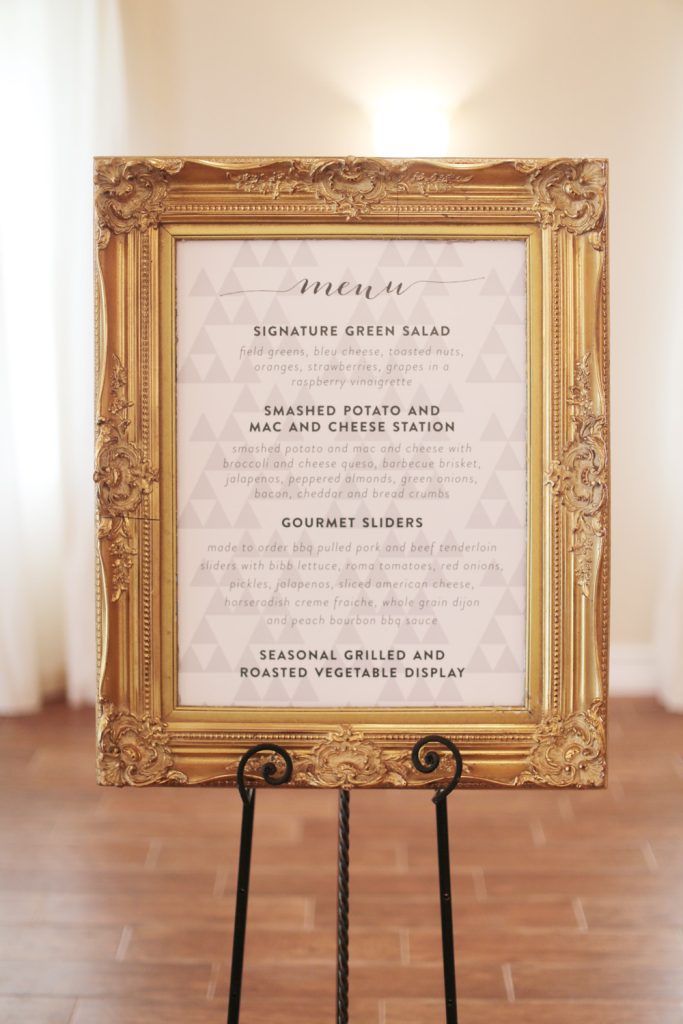 menu
SIGNATURE GREEN SALAD
field greens, bleu cheese, toasted nuts,
oranges, strawberries, grapes in a
raspberry vinaigrette
SMASHED POTATO AND
MAC AND CHEESE STATION
smashed potato and mac and cheese with
broccoli and cheese queso, barbecue brisket,
jalapenos, peppered almonds, green onions,
bacon, cheddar and bread crumbs
GOURMET SLIDERS
made to order bbq pulled pork and beef tenderloin
sliders with bibb lettuce, roma tomatoes, red onions,
pickles, jalapenos, sliced american cheese,
horseradish creme fraiche, whole grain dijon
and peach bourbon bbq sauce
SEASONAL GRILLED AND
ROASTED VEGETABLE DISPLAY